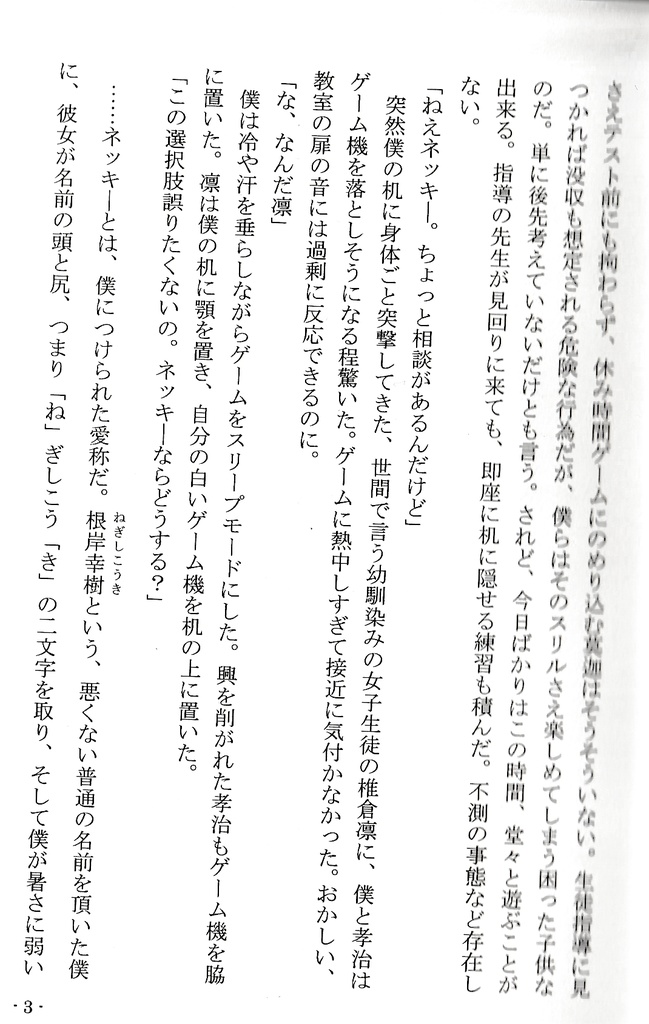 さえテスト前にも拘わらず、休み時間ゲームにのめり込む莫迦はそうそういない。生徒指導に見
つかれば没収も想定される危険な行為だが、僕らはそのスリルさえ楽しめてしまう困った子供な
のだ。単に後先考えていないだけとも言う。されど、今日ばかりはこの時間、堂々と遊ぶことが
出来る。指導の先生が見回りに来ても、即座に机に隠せる練習も積んだ。不測の事態など存在し
ない。
「ねえネッキー。ちょっと相談があるんだけど」
突然僕の机に身体ごと突撃してきた、世間で言う幼馴染みの女子生徒の椎倉凛に、僕と孝治は
ゲーム機を落としそうになる程驚いた。ゲームに熱中しすぎて接近に気付かなかった。おかしい、
教室の扉の音には過剰に反応できるのに。
「な、なんだ凛」
僕は冷や汗を垂らしながらゲームをスリープモードにした。興を削がれた孝治もゲーム機を脇
に置いた。凛は僕の机に顎を置き、自分の白いゲーム機を机の上に置いた。
「この選択肢誤りたくないの。ネッキーならどうする？」
……ネッキーとは、僕につけられた愛称だ。根岸幸樹という、悪くない普通の名前を頂いた僕
ねぎしこうき
に、彼女が名前の頭と尻、つまり「ね」ぎしこう「き」の二文字を取り、そして僕が暑さに弱い
- 3 -